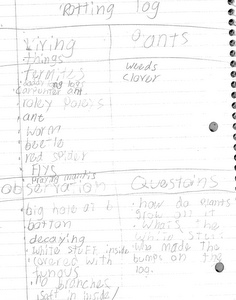 Rotting log
Living things
termites
carpenter ant
roley poleis
ant
worm
beetle
red spider
Flys
praying mantis
Plants
weeds
clover
obserration
big hole at
bottom
decaying
white stuff inside
covered with
fungus
no branches
soft inside
Questoins
how do plants
grow
what's the
white stuff
who made the
bumps on the
log.